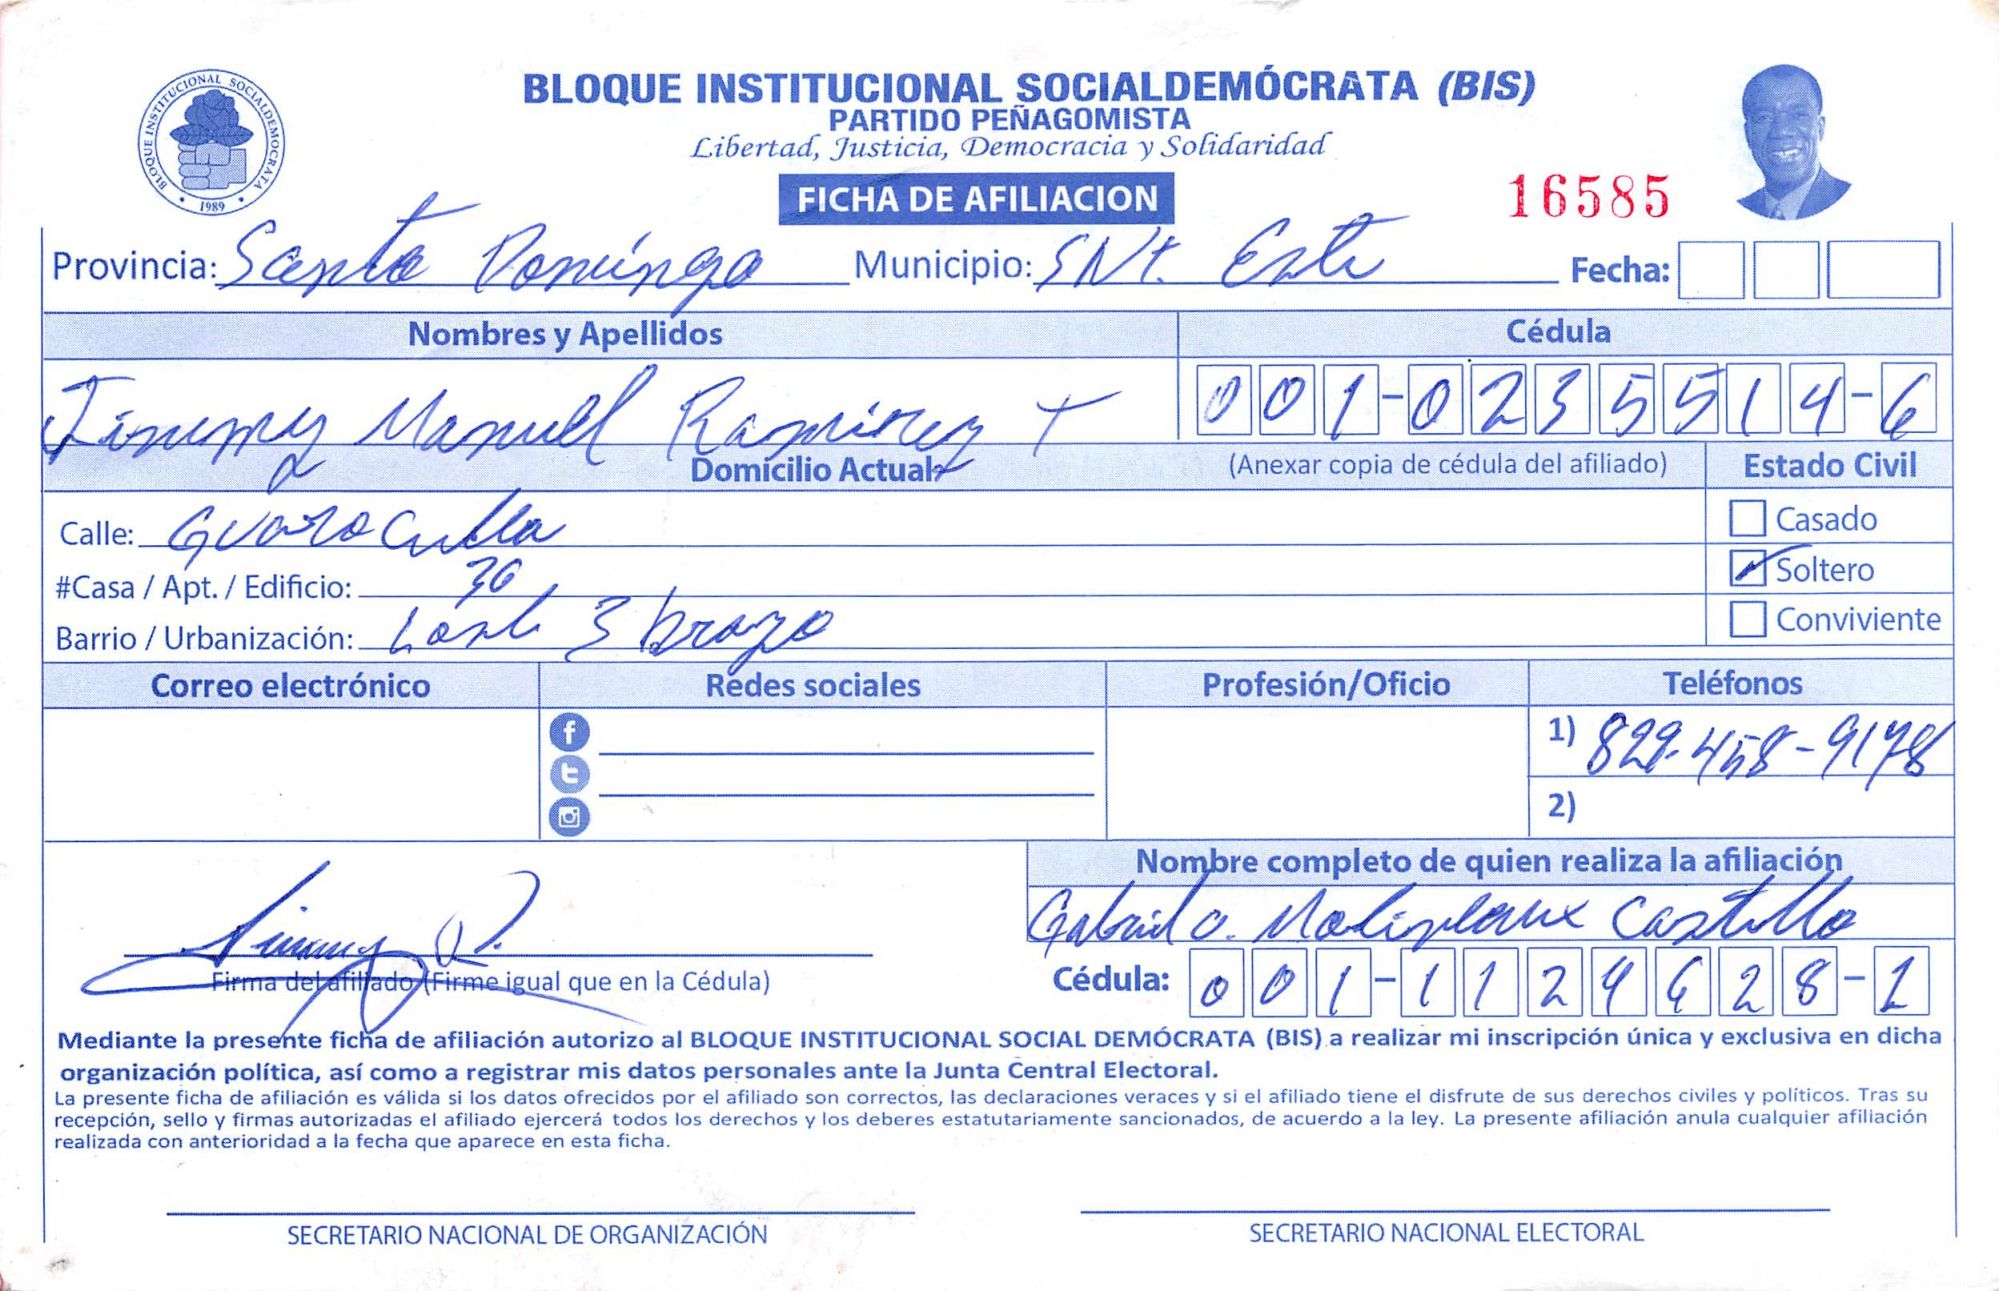 BLOQUE INSTITUCIONAL SOCIALDEMÓCRATA (BIS)
PARTIDO PEÑAGOMISTA
Libertad, Justicia, Democracia y Solidaridad
BLOQUE INSTITUCIONAL SOCIALDEMOCRATA
1989
FICHA DE AFILIACION
16585
Provincia: Santo Domingo Municipio: SNt. Este Fecha:
Nombres y Apellidos Cédula
Jimmy Manuel Ramirez T 001-0235514-6
Domicilio Actual: (Anexar copia de cédula del afiliado) Estado Civil
Calle: Casado
#Casa / Apt. / Edificio: 30 Soltero
Barrio / Urbanización: 3 brazo Conviviente
Correo electrónico Redes sociales Profesión/Oficio Teléfonos
1) 829-458-9178
2)
Nombre completo de quien realiza la afiliación
Gabriel O. Castillo
Jimmy R.
Firma del afiliado (Firme igual que en la Cédula) Cédula: 001-1124628-1
Mediante la presente ficha de afiliación autorizo al BLOQUE INSTITUCIONAL SOCIAL DEMÓCRATA (BIS) a realizar mi inscripción única y exclusiva en dicha
organización política, así como a registrar mis datos personales ante la Junta Central Electoral.
La presente ficha de afiliación es válida si los datos ofrecidos por el afiliado son correctos, las declaraciones veraces y si el afiliado tiene el disfrute de sus derechos civiles y políticos. Tras su
recepción, sello y firmas autorizadas el afiliado ejercerá todos los derechos y los deberes estatutariamente sancionados, de acuerdo a la ley. La presente afiliación anula cualquier afiliación
realizada con anterioridad a la fecha que aparece en esta ficha.
SECRETARIO NACIONAL DE ORGANIZACIÓN SECRETARIO NACIONAL ELECTORAL